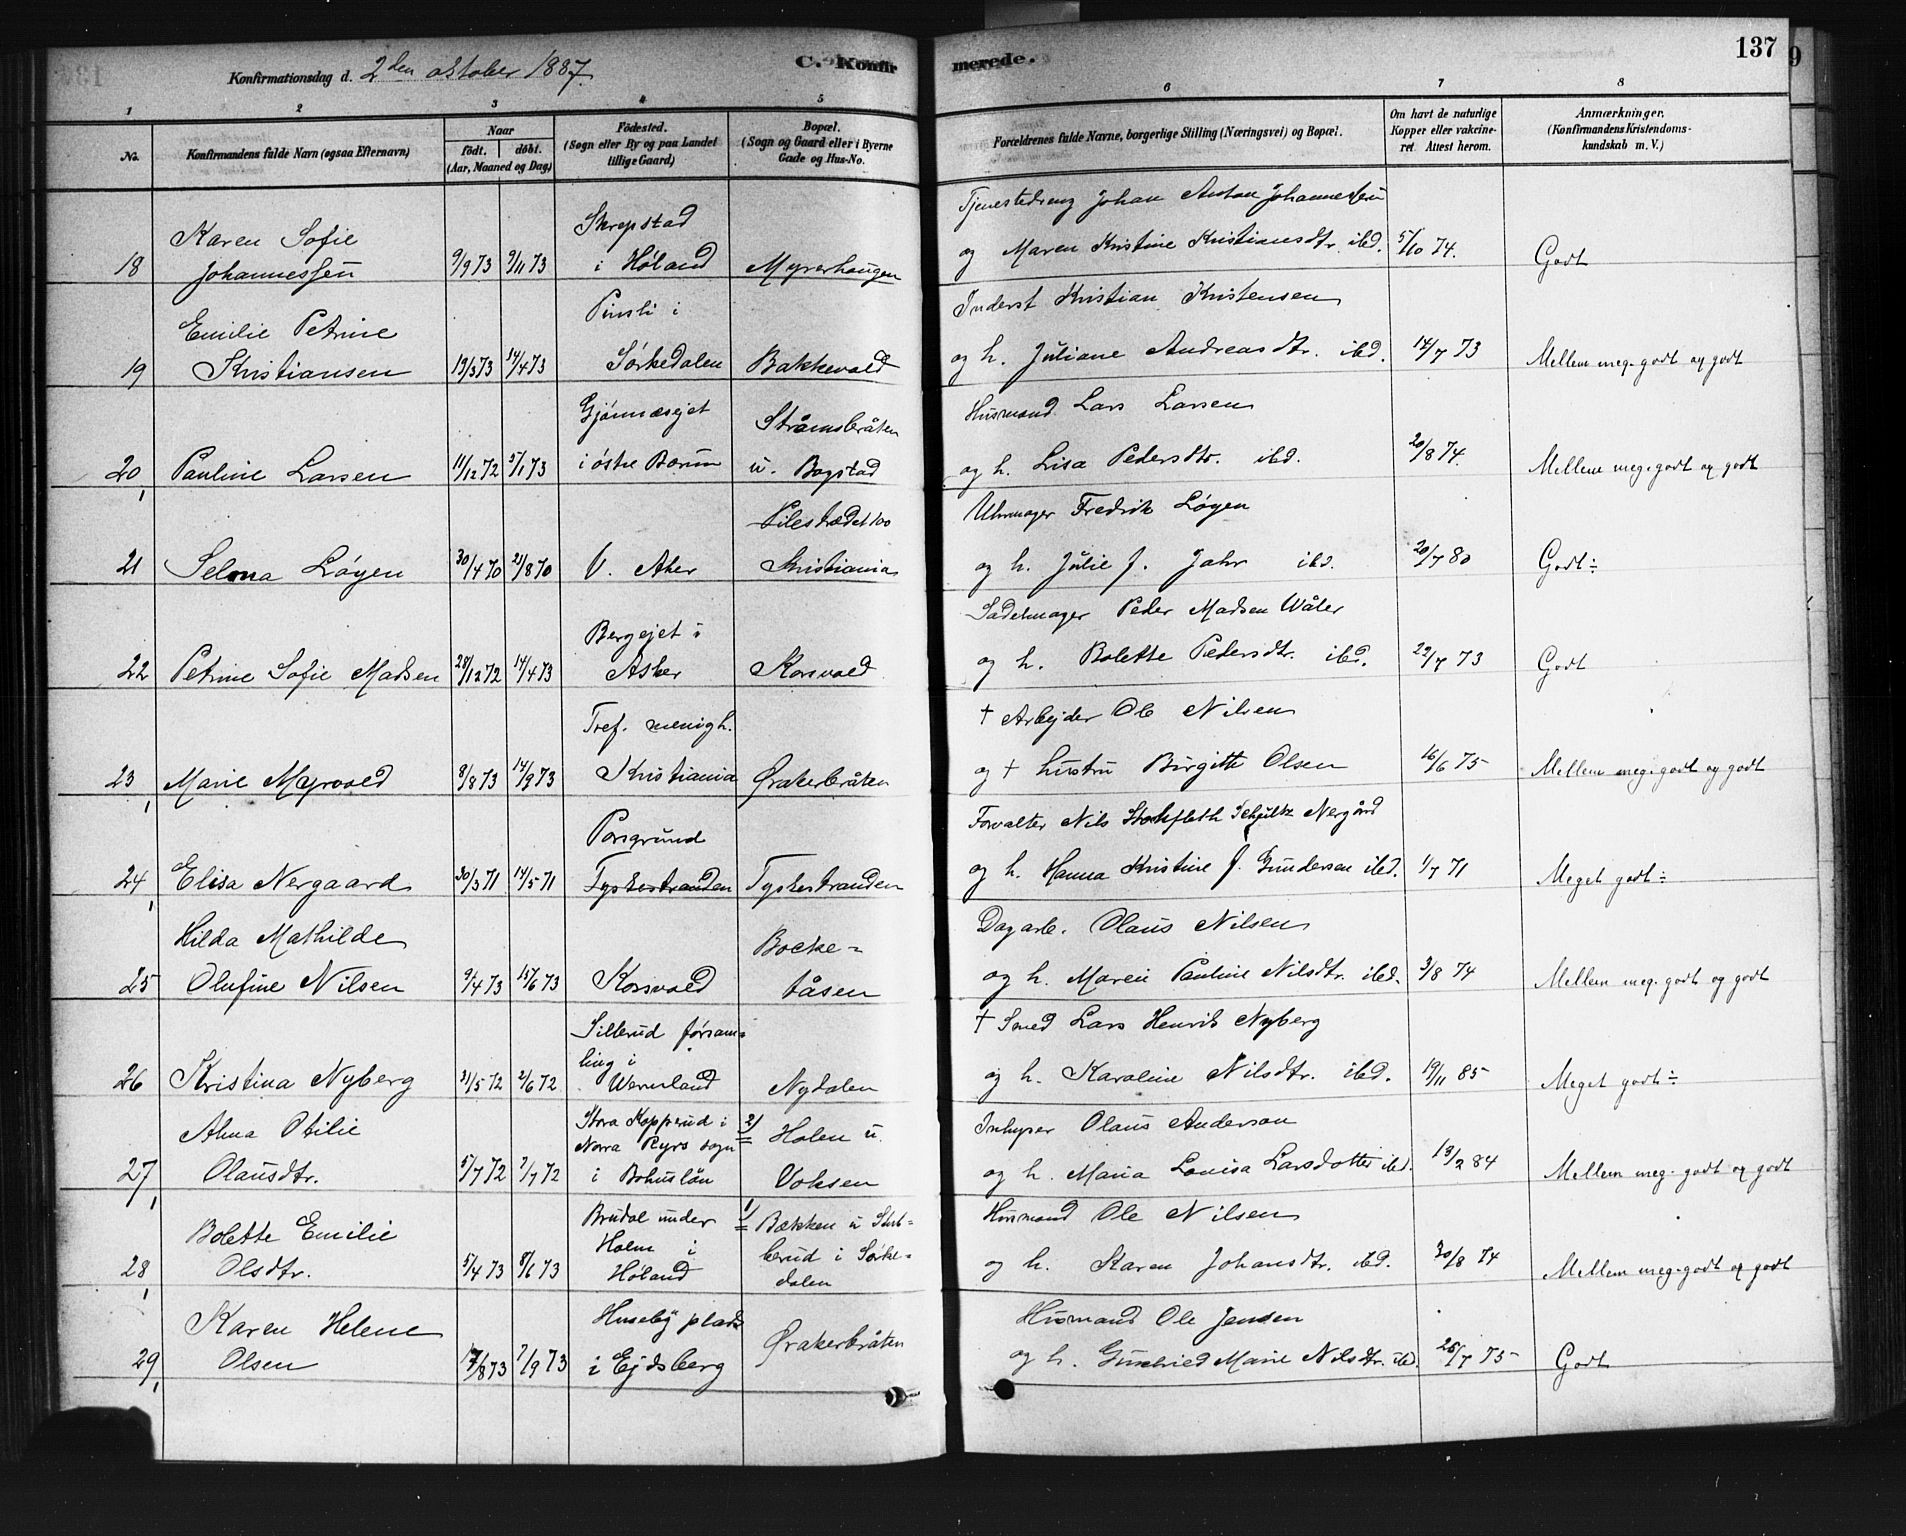 Konfirmationsdag d. 2den oktober 1887.
C. Konfirmerede.
137
1 2 3 4 5 6 7 8
No.
Konfirmandens fulde Navn (ogsaa Efternavn)
Naar
födt. döbt.
(Aar, Maaned og Dag)
Födested.
(Sogn eller By og paa Landet
tillige Gaard)
Bopæl.
(Sogn og Gaard eller i Byerne
Gade og Hus-No.
Forældrenes fulde Navne, borgerlige Stilling (Næringsvei) og Bopæl.
Om havt de naturlige
Kopper eller vakcine-
ret. Attest herom.
Anmærkninger.
(Konfirmandens Kristendoms-
kundskab m. V.)
Skrepstad
Tjenestedreng Johan Anton Johannessen
Karen Sofie
18 Johannessen 9/9 73 9/11 73 i Høland Myrerhaugen og Maren Kristine Kristiansdtr. ibd. 5/10 74. Godt
Pinsli i
Inderst Kristian Kristensen
Emilie Petrine
19 Kristiansen 13/3 73 14/4 73 Sørkedalen Bakkevold og h. Juliane Andreasdtr. ibd. 14/7 73 Mellem meg. godt og godt
Gjønnæsejet Strømsbråten
Husmand Lars Larsen
20 Pauline Larsen 11/12 72 5/1 73 i østre Bærum u. Bogstad og h. Lisa Pedersdtr. ibd. 20/8 74. Mellem meg. godt og godt
Pilestrædet 100
Uhrmager Fredrik Løyen
21 Selma Løyen 30/4 70 21/8 70 V. Aker Kristiania og h. Julie f. Jahr ibd. 20/7 80 Godt ÷
Bergejet i
Sadelmager Peder Madsen Wåler
22 Petrine Sofie Madsen 28/12 72 14/4 73 Asker Korsvold og h. Bolette Pedersdtr. ibd. 22/7 73 Godt
Tref. menigh.
† Arbejder Ole Nilsen
23 Marie Myrvold 8/8 73 14/9 73 Kristiania Ørakerbråten og † hustru Birgitte Olsen 16/6 75 Mellem meg. godt og godt
Porsgrund
Forvalter Nils Stockfleth Schjultz Nergård
24 Elisa Nergaard 30/3 71 14/5 71 Tyskestranden Tyskestranden og h. Hanna Kristine f. Gundersen ibd. 1/7 71 Meget godt ÷
Hilda Mathilde Bocke-
Dagarb. Olaus Nilsen
25 Olufine Nilsen 9/4 73 15/6 73 Korsvold tåsen og h. Maren Pauline Nilsdtr. ibd. 3/8 74 Mellem meg. godt og godt
Sillerud försam-
† Smed Lars Henrik Nyberg
ling i
26 Kristina Nyberg 21/5 72 2/6 72 Wermland Nydalen og h. Karoline Nilsdtr. ibd. 19/11 85 Meget godt ÷
Alma Otilie Stora Kopperud i 2) Holen u.
Norra Ryrs sogn
Inhyser Olaus Anderson
27 Olausdtr. 5/7 72 7/7 72 i Bohuslän Voksen og h. Maria Lovisa Larsdotter ibd. 13/2 84 Mellem meg. godt og godt
Brudal under 1) Bækken u
Husmand Ole Nilsen
Bolette Emilie Holm i berud i Sørke-
28 Olsdtr. 5/4 73 8/6 73 Høland dalen og h. Karen Johansdtr. ibd. 30/8 74 Mellem meg. godt og godt
Huseby plads
Husmand Ole Jensen
Karen Helene Ørakerbråten
29 Olsen 17/8 73 7/9 73 i Ejdsberg og h. Marie Nilsdtr. ibd. 26/7 75 Godt